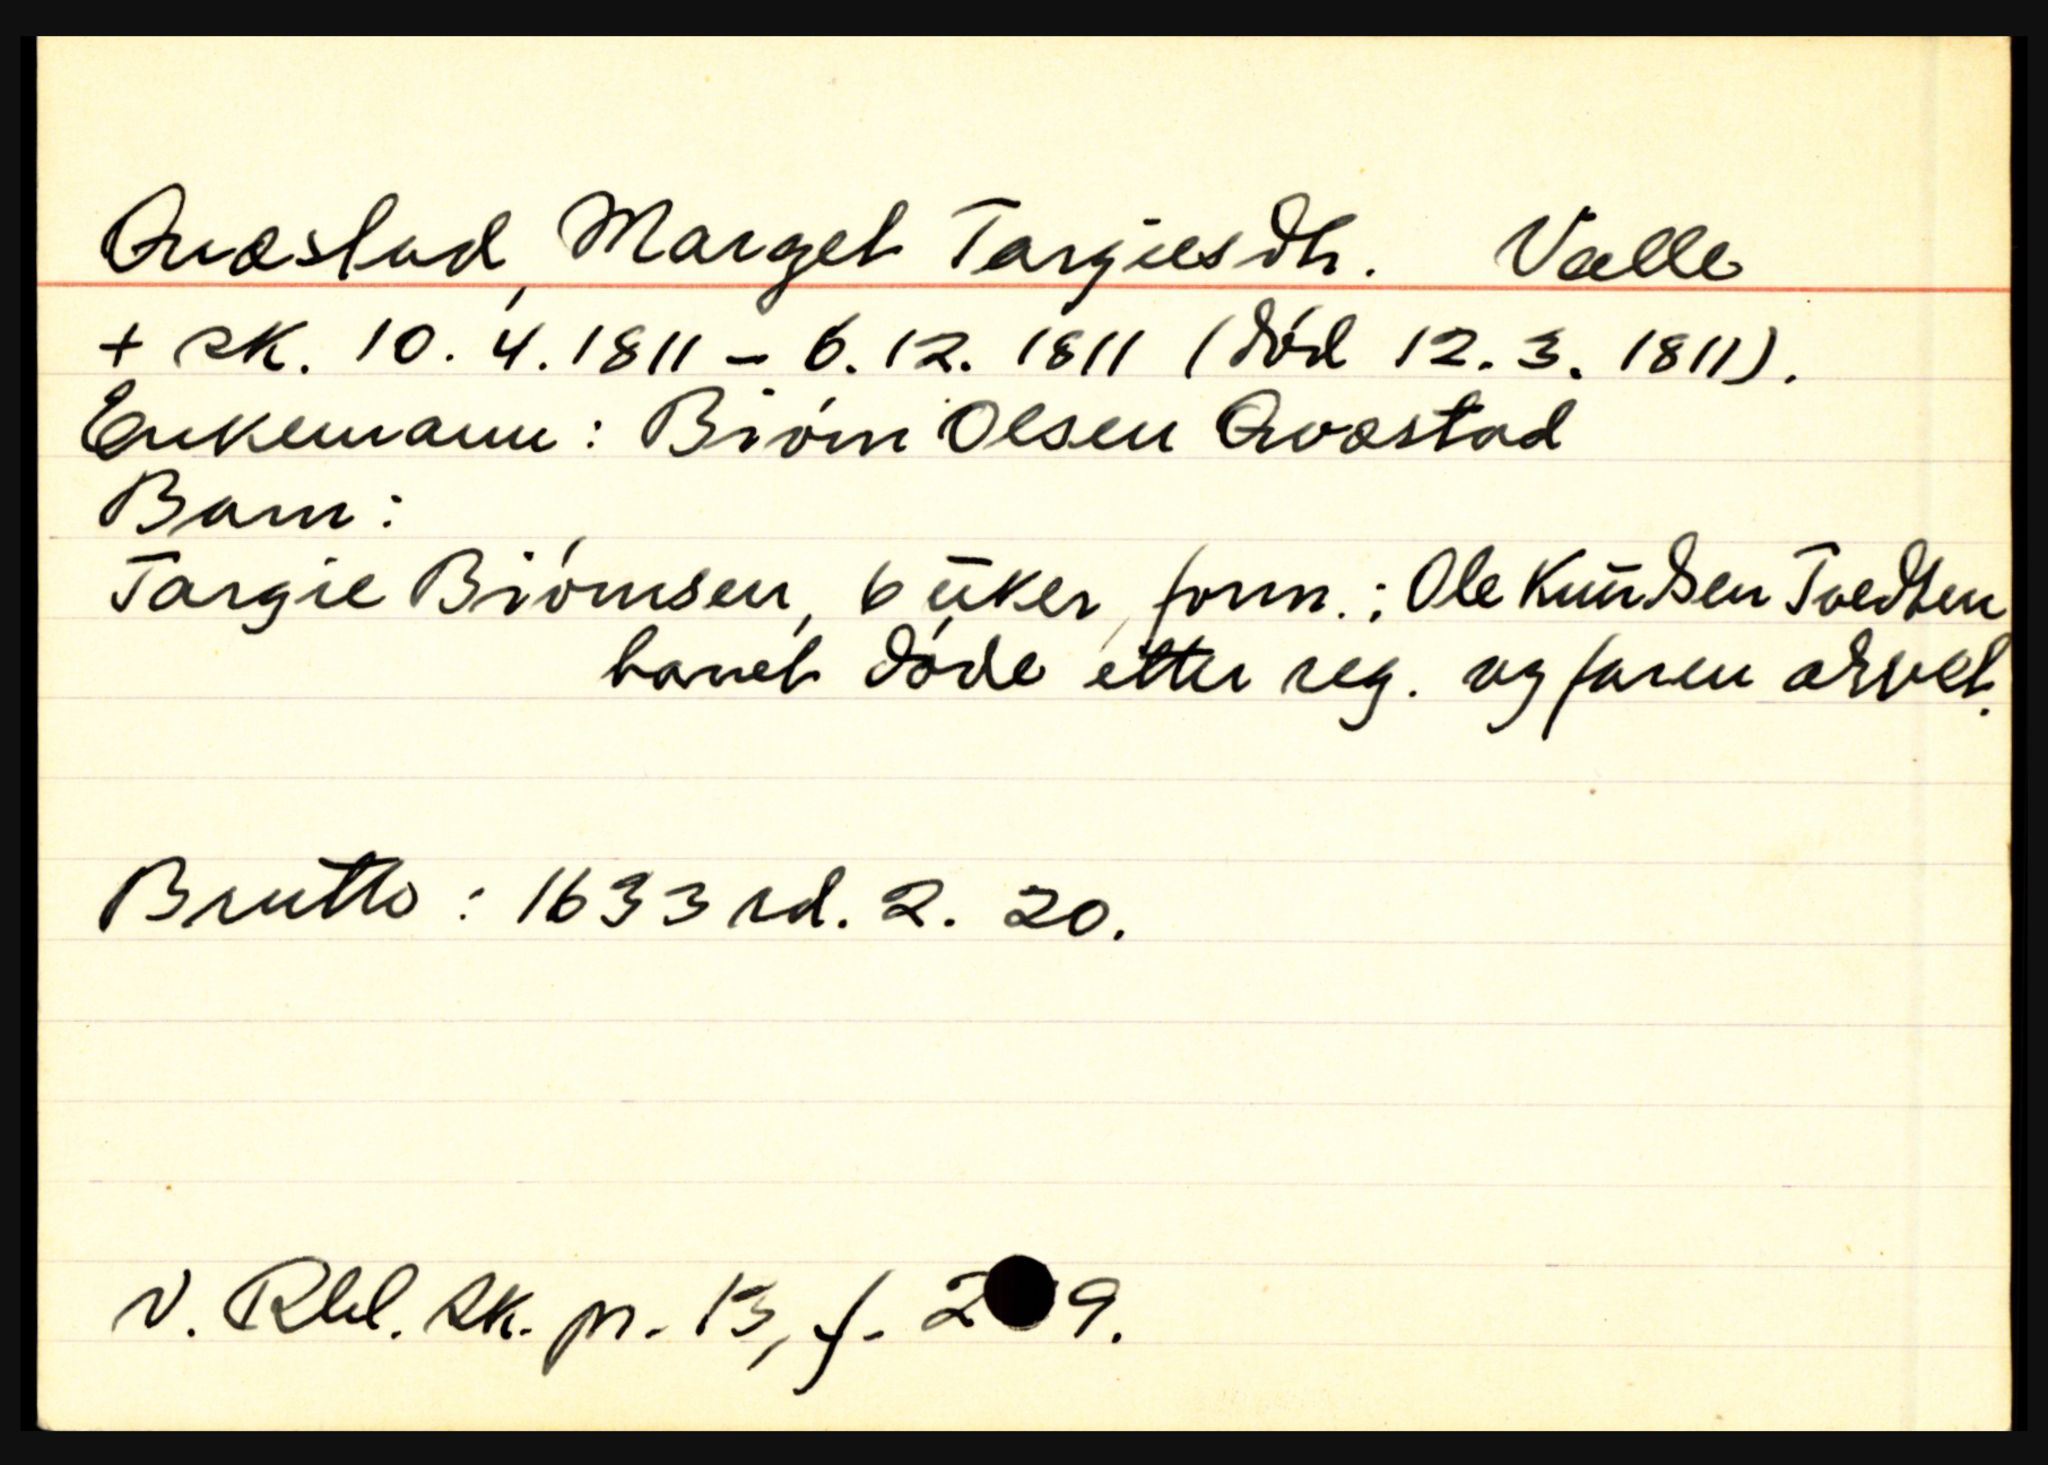 Qvæstad, Marget Targiesdtr. Vælle
+ sk. 10. 4. 1811 - 6. 12. 1811 (død 12. 3. 1811).
Enkemann: Biørn Olsen Qvæstad
Barn:
Targie Biørnsen, 6 uker, form.: Ole Knudsen Tvedten
barnet døde etter reg. og faren arvet.
Brutto: 1633 rd. 2. 20.
V. Rbl. sk. pr. 13, f. 2 9.